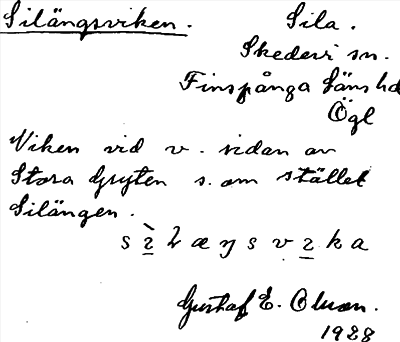 Silängsviken. Sila.
Skedevi sn.
Finspånga läns hd
Ögl
Viken vid v. sidan av
Stora Gryten s. om stället
Silängen.
Gustaf E. Olsson.
1928